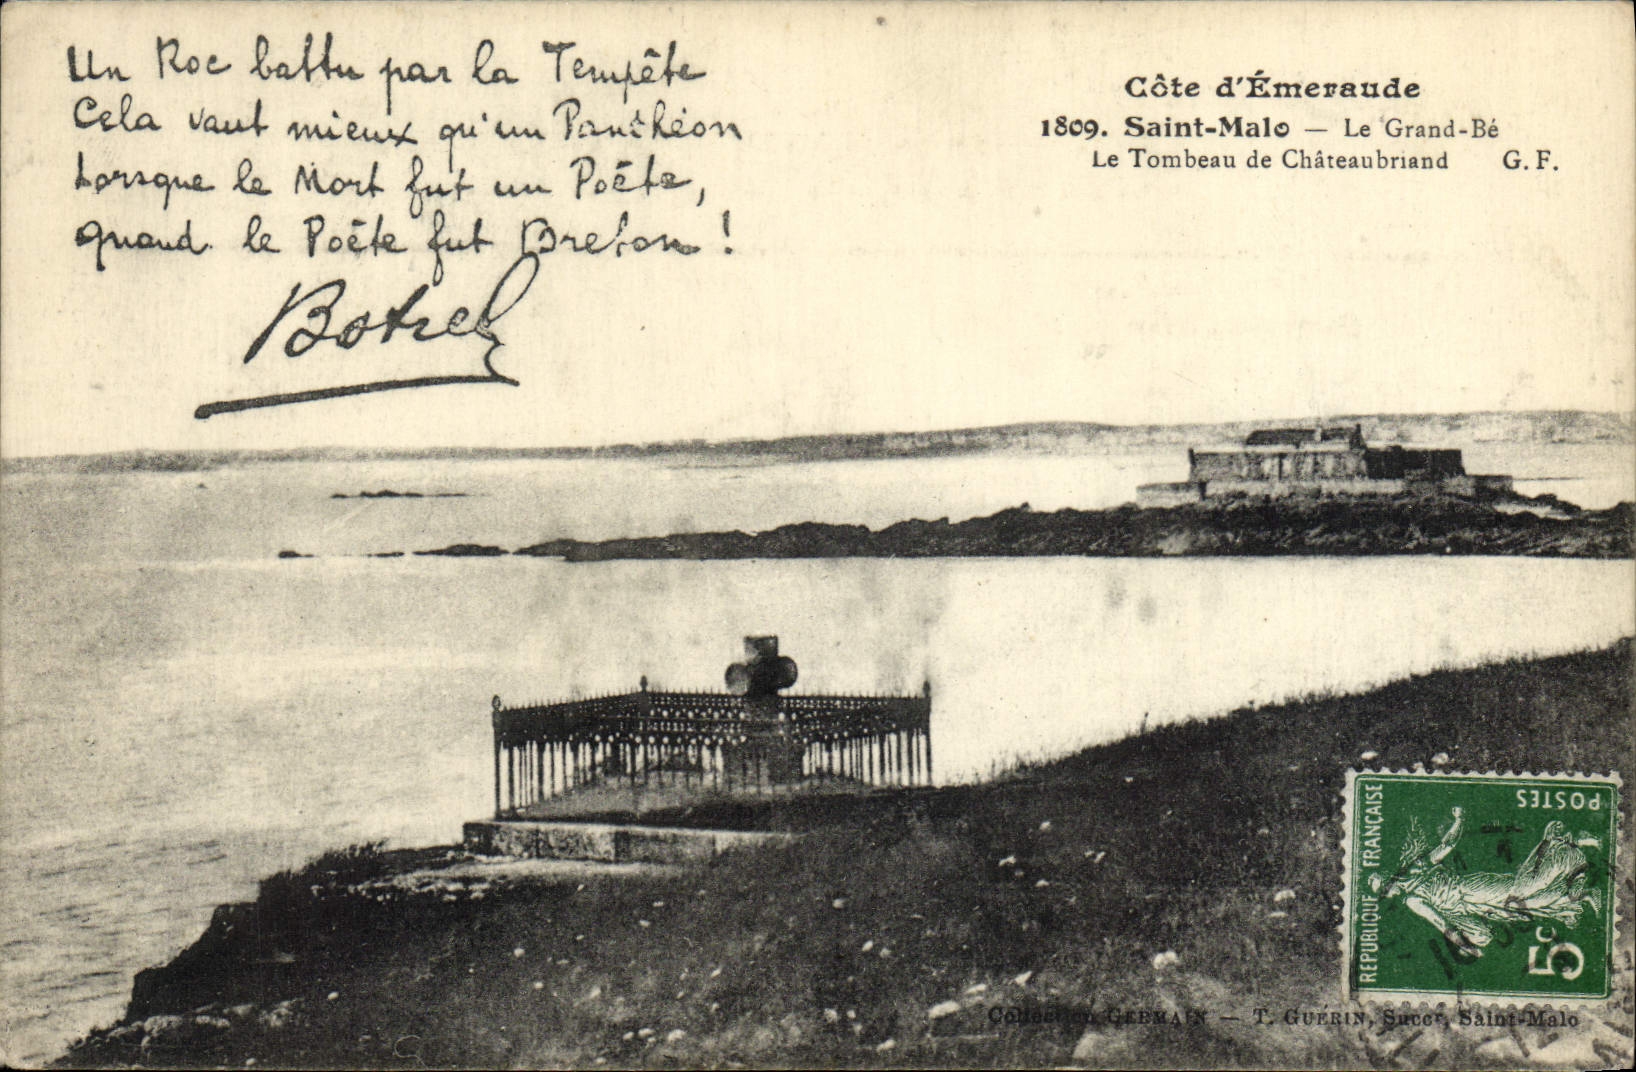 Un Roc battu par la Tempête
Cela vaut mieux qu'un Panthéon
Lorsque le Mort fut un Poète,
quand le Poète fut Breton !
Botrel
Côte d'Émeraude
1809. Saint-Malo — Le Grand-Bé
Le Tombeau de Châteaubriand G. F.
REPUBLIQUE FRANÇAISE
POSTES
5c
Collection GERMAIN — T. GUÉRIN, Succr, Saint-Malo